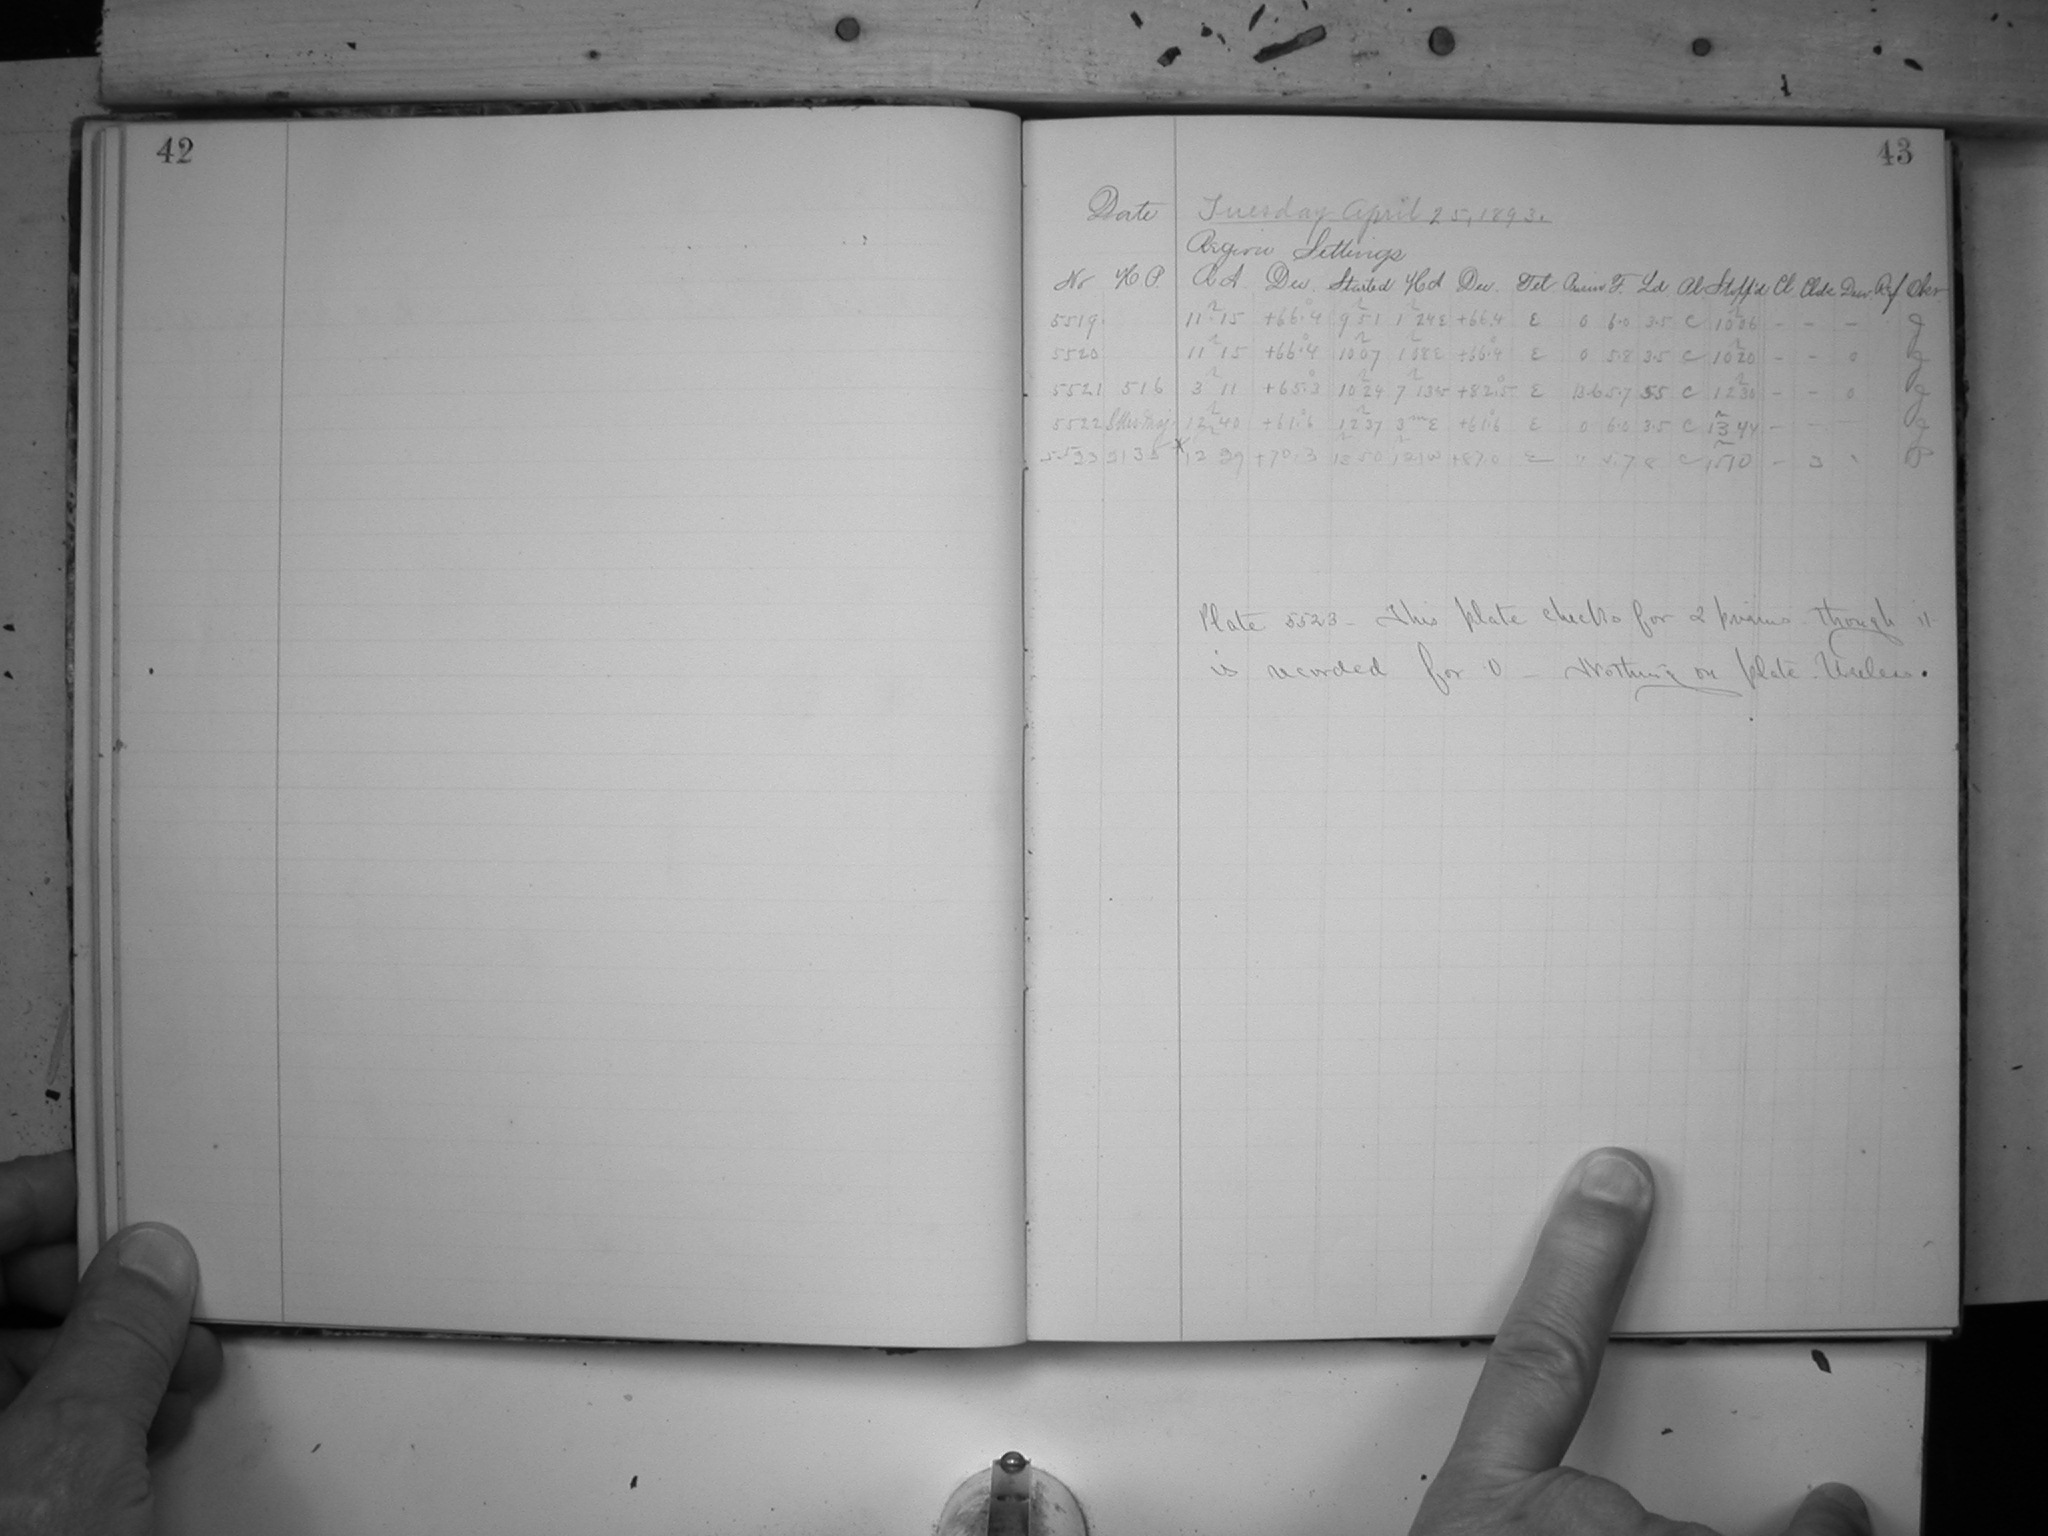 42
43
Date Tuesday April 25, 1893.
Region Settings
No H P R A Dec. Started H A Dec. Tel Prism F. Ld Al Stopp'd Cl Clck Dew Ref Obsr
5519 11h 15 +66.4 9 51 1h 24 E +66.4 E 0 6.0 3.5 C 10 06 - - - J
5520 11h 15 +66.4 10 07 1 08 E +66.4 E 0 5.8 3.5 C 10 20 - - 0 J
5521 516 3h 11 +65.3 10 24 7 13 +82.5 E 5.7 55 C 12 30 - - 0 J
5522 12 40 +61.6 12 37 3m E +61.6 E 0 6.0 3.5 C 13 44 - - - J
5523 +70.3 +87.0 E 5.7 C - 3
Plate 5523 - This plate checks for 2 prisms though it
is recorded for 0 - Nothing on plate. Useless.